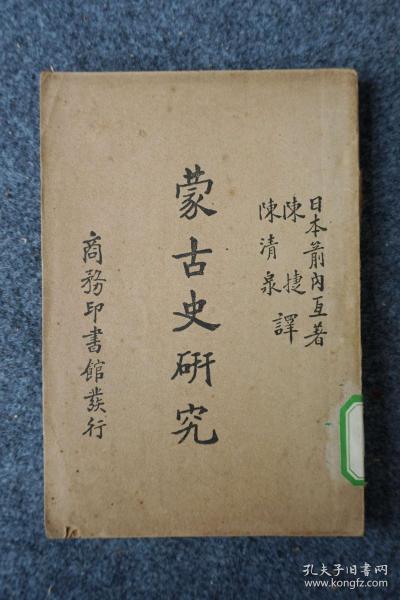 日本箭内亙著
陳捷
陳清泉 譯
蒙古史研究
商務印書館發行
孔夫子旧书网
www.kongfz.com